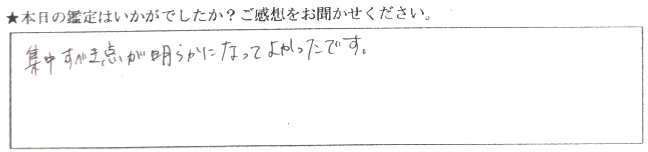 ★本日の鑑定はいかがでしたか？ご感想をお聞かせください。
集中すべき点が明らかになってよかったです。